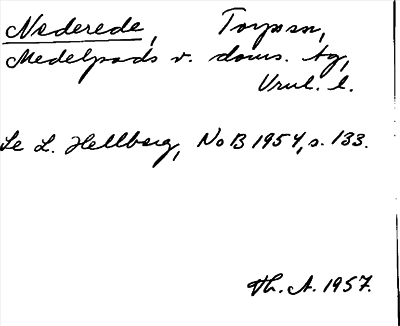 Nederede, Torpssn,
Medelpads v. doms. tg,
Vnl. l.
Se L. Hellberg, NoB 1954, s. 133.
Th. A. 1957.